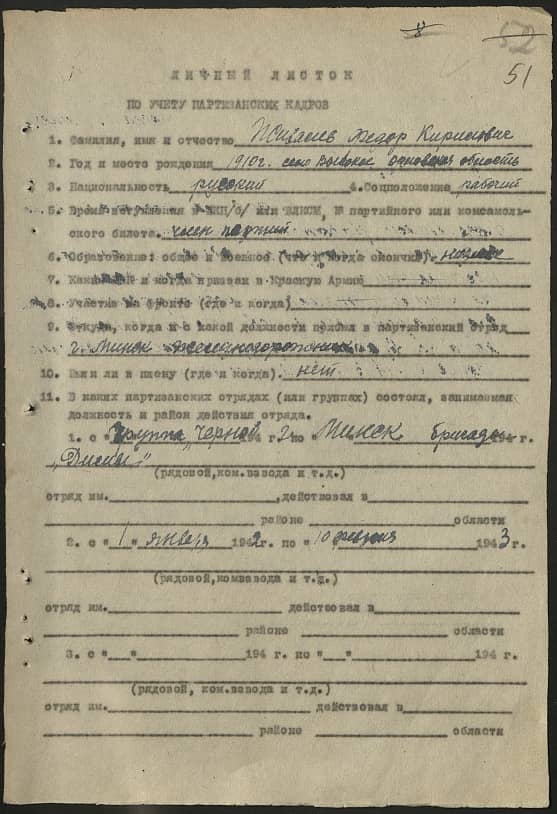 8
52
51
ЛИЧНЫЙ ЛИСТОК
ПО УЧЕТУ ПАРТИЗАНСКИХ КАДРОВ
1. Фамилия, имя и отчество Федор Кириллович
2. Год и место рождения 1910г. село Высокое область
3. Национальность русский 4. Соцположение рабочий
5. Время вступления в ВКП/б/ или ВЛКСМ, № партийного или комсамоль-
ского билета. член партии
6. Образование: общее и военное (что и когда окончил). низшее
7. Каким и когда призван в Красную Армию
8. Участие на фронте (где и когда)
9. Откуда, когда и с какой должности прибыл в партизанский отряд
г. Минск
10. Были ли в плену (где и когда). нет
11. В каких партизанских отрядах (или группах) состоял, занимаемая
должность и район действия отряда.
1. с " группа "Чернов 194 2г по " Минск бригада 194 г.
(рядовой, ком.взвода и т.д.)
отряд им. , действовал в
районе области
2. с " 1 " января 1942г. по " 10 февраля 1943 г.
(рядовой, комвзвода и т.д.)
отряд им. действовал в
районе области
3. с " " 194 г. по " " 194 г.
(рядовой, ком.взвода и т.д.)
отряд им. действовал в
районе области